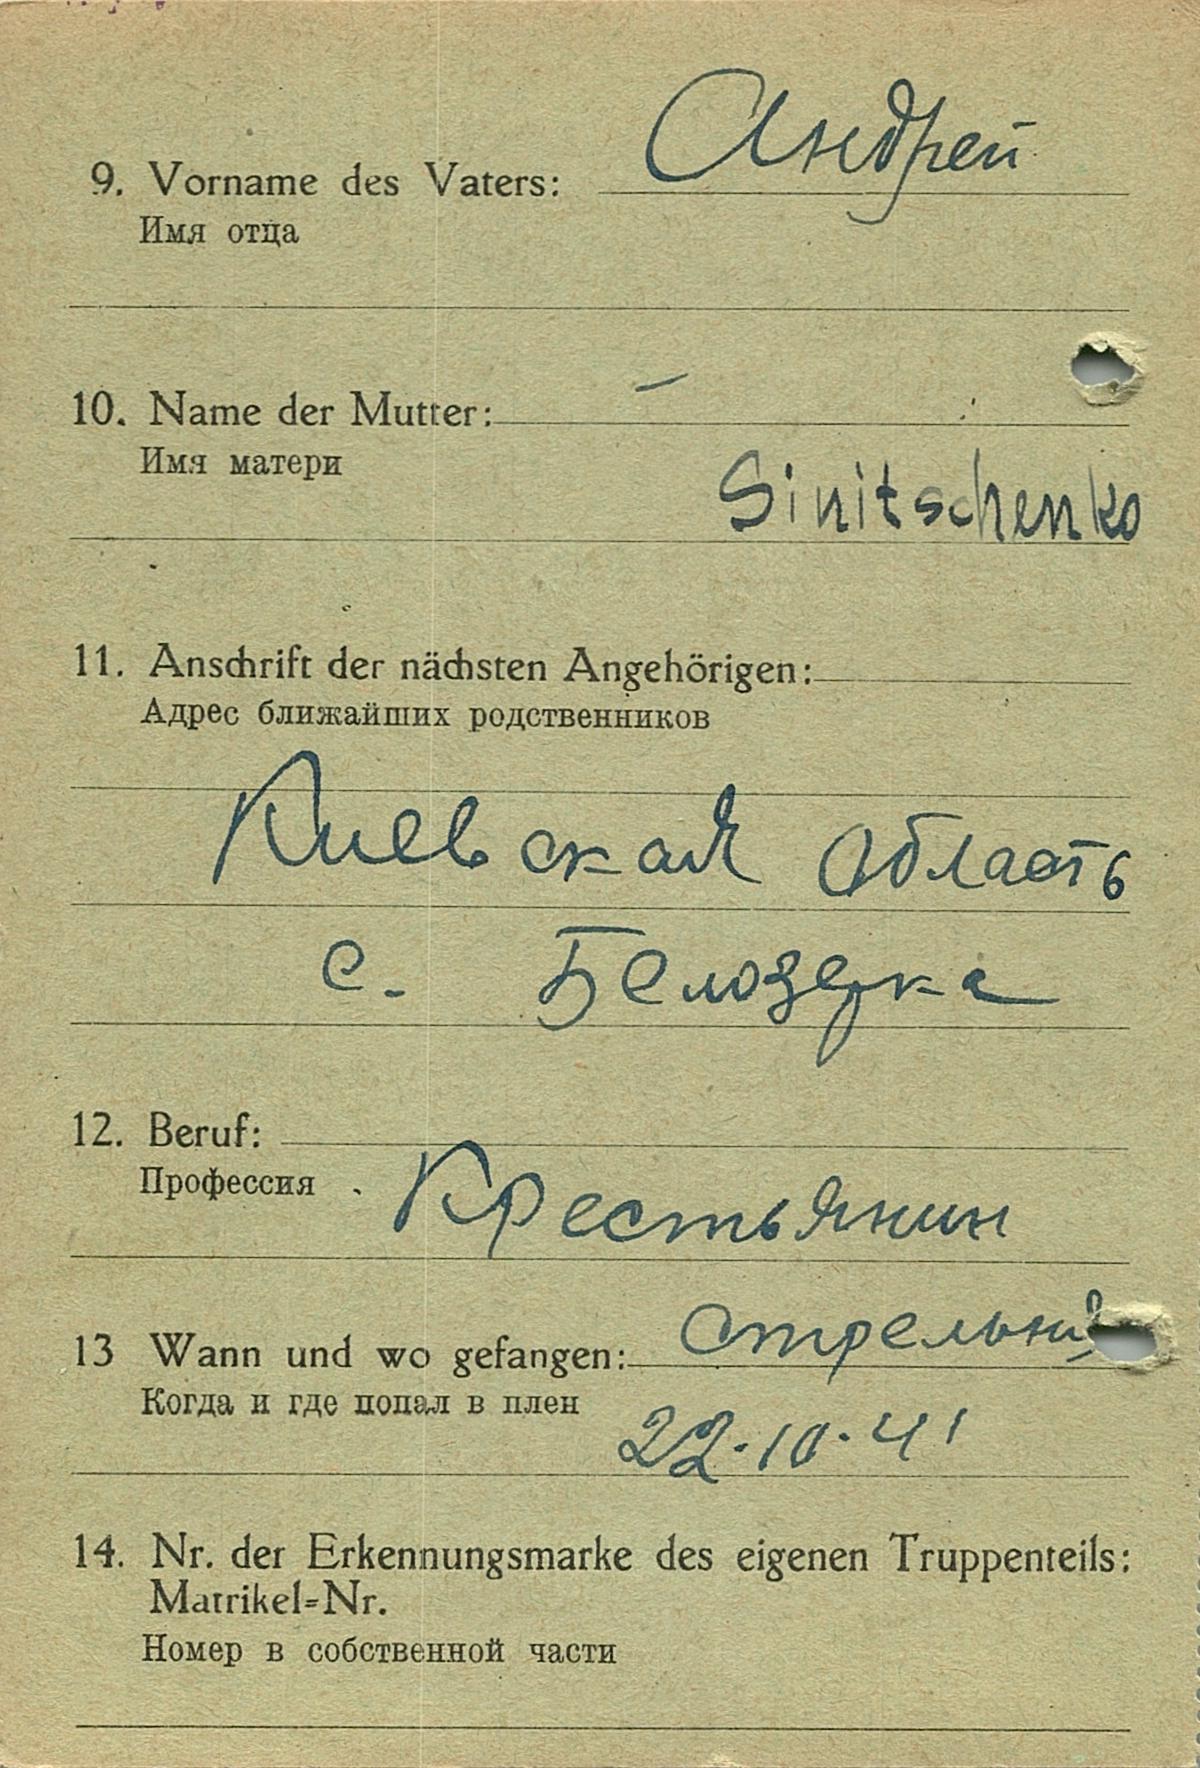 Андрей
9. Vorname des Vaters:
Имя отца
10. Name der Mutter: –
Имя матери
Sinitschenko
11. Anschrift der nächsten Angehörigen:
Адрес ближайших родственников
Киевская область
с. Белозерка
12. Beruf:
Профессия
Крестьянин
13 Wann und wo gefangen:
Когда и где попал в плен
22.10.41
14. Nr. der Erkennungsmarke des eigenen Truppenteils:
Matrikel=Nr.
Номер в собственной части